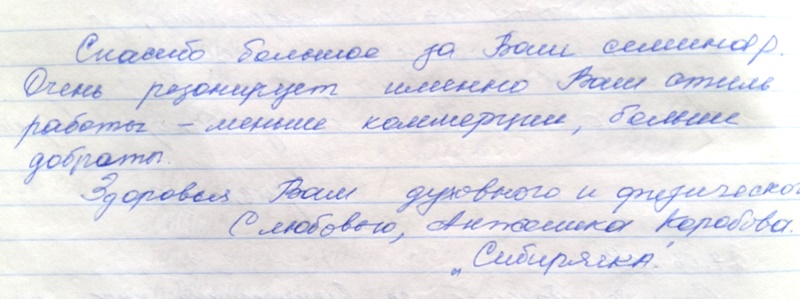 Спасибо большое за Ваш семинар.
Очень резонирует именно Ваш стиль
работы – меньше коммерции, больше
доброты.
Здоровья Вам духовного и физическог
С любовью, Анжелика Коробова.
„Сибирячка".